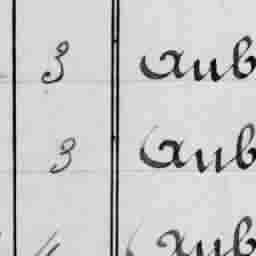 3 Aub
3 Aub
Aub